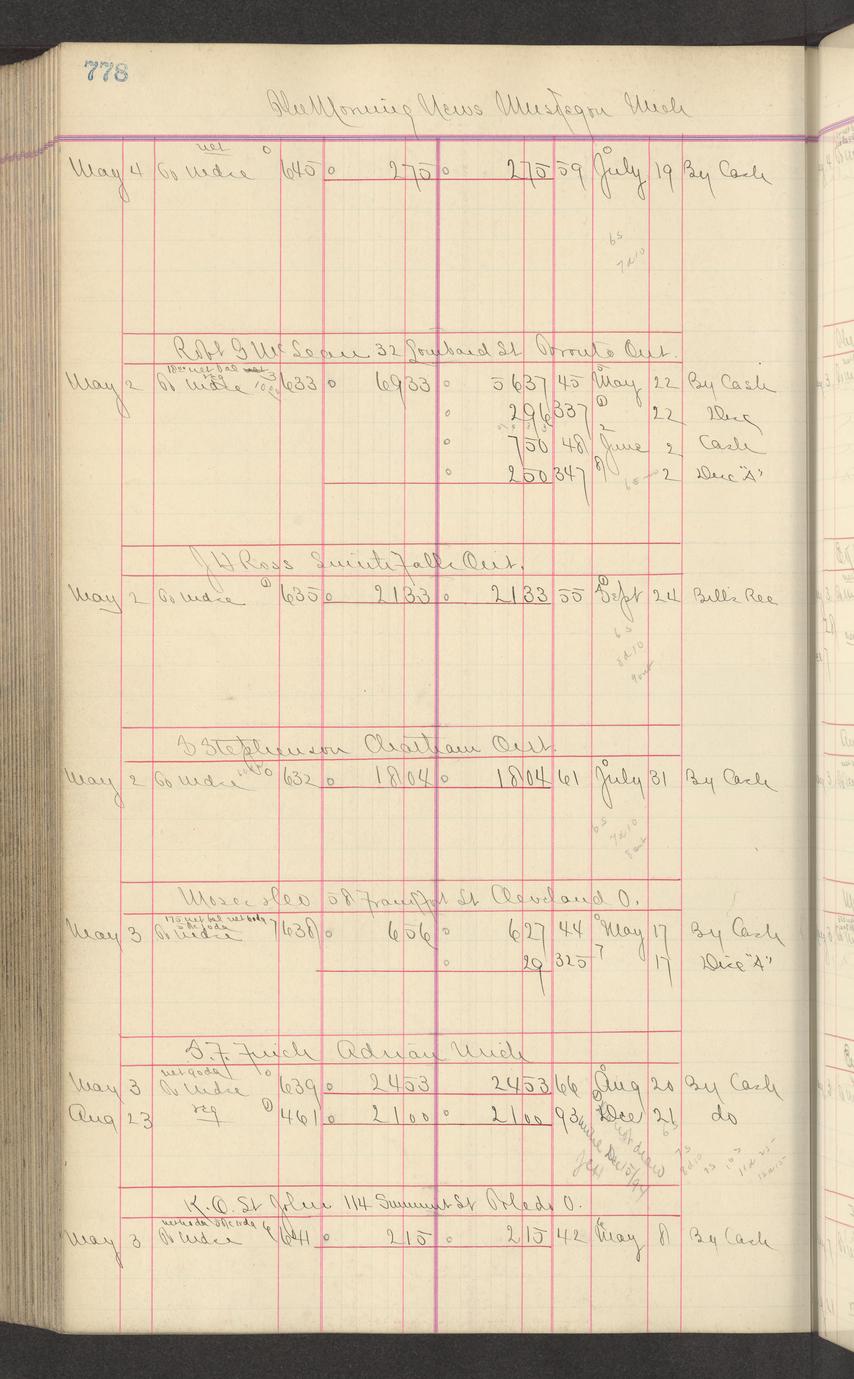 778
The Morning News Muskegon Mich
net 0
May 4 To Mdse 645 275 275 59 July 19 By Cash
6 5
7 & 10
Robt G McLean 32 Lombard St Toronto Ont.
May 2 To Mdse 3 633 6933 5637 45 May 22 By Cash
296 337 22 Disc
750 48 June 2 Cash
250 347 2 Disc "A"
J H Ross Smiths Falls Ont.
May 2 To Mdse 635 2133 2133 55 Sept 24 Bills Rec
6 5
8 & 10
Stephenson Chatham Ont.
May 2 To Mdse 0 632 1804 1804 61 July 31 By Cash
6 5
7 & 10
Moses Cleo 58 Frankfort St Cleveland O.
May 3 To Mdse 7 638 656 627 44 May 17 By Cash
29 325 17 Disc "A"
Adrian Mich
net 90da 0
May 3 To Mdse 639 2453 2453 66 Aug 20 By Cash
Aug 23 461 2100 2100 93 Dec 21 do
K. O. St John 114 Summit St Toledo O.
May 3 To Mdse 6 641 215 215 42 May 8 By Cash